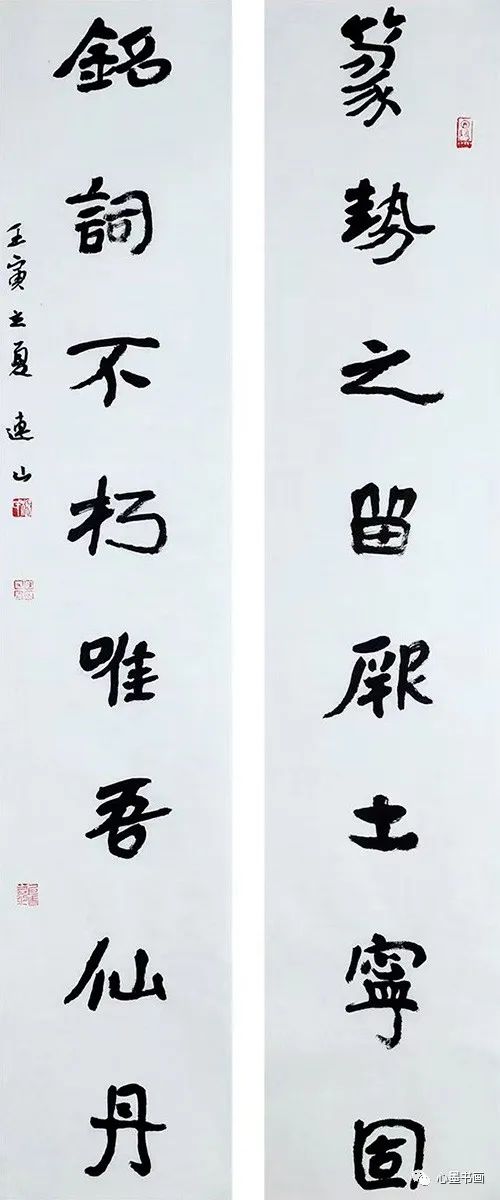 篆勢之留厥土寧固
銘詞不朽唯吾仙丹
壬寅之夏 連山
心墨书画